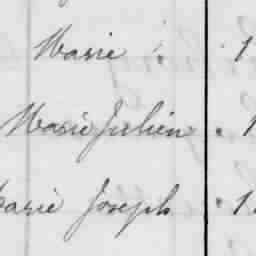 Marie 1
Marie Julien . 1
Marie Joseph . 1